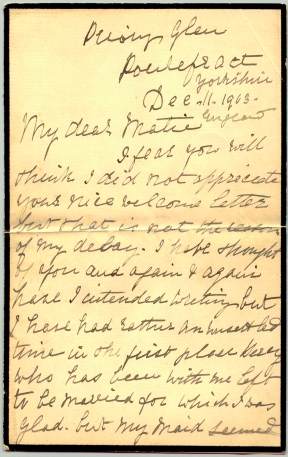 Priory Glen
Pontefract
Yorkshire
Dec. 11. 1903.
England
My dear Matie
I fear you will
think I did not appreciate
your nice welcome letter
but that is not the reason
of my delay. I have thought
of you and again & again
have I intended writing but
I have had rather an unsettled
time in the first place
who has been with me left
to be married for which I was
glad. but my maid seemed